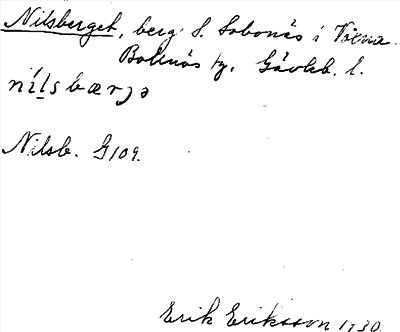 Nilsberget, berg S. Sobonäs i Voxna
Bollnäs tg. Gävleb. l.
nílsbærjə
Nilsb. G109.
Erik Eriksson 1930.